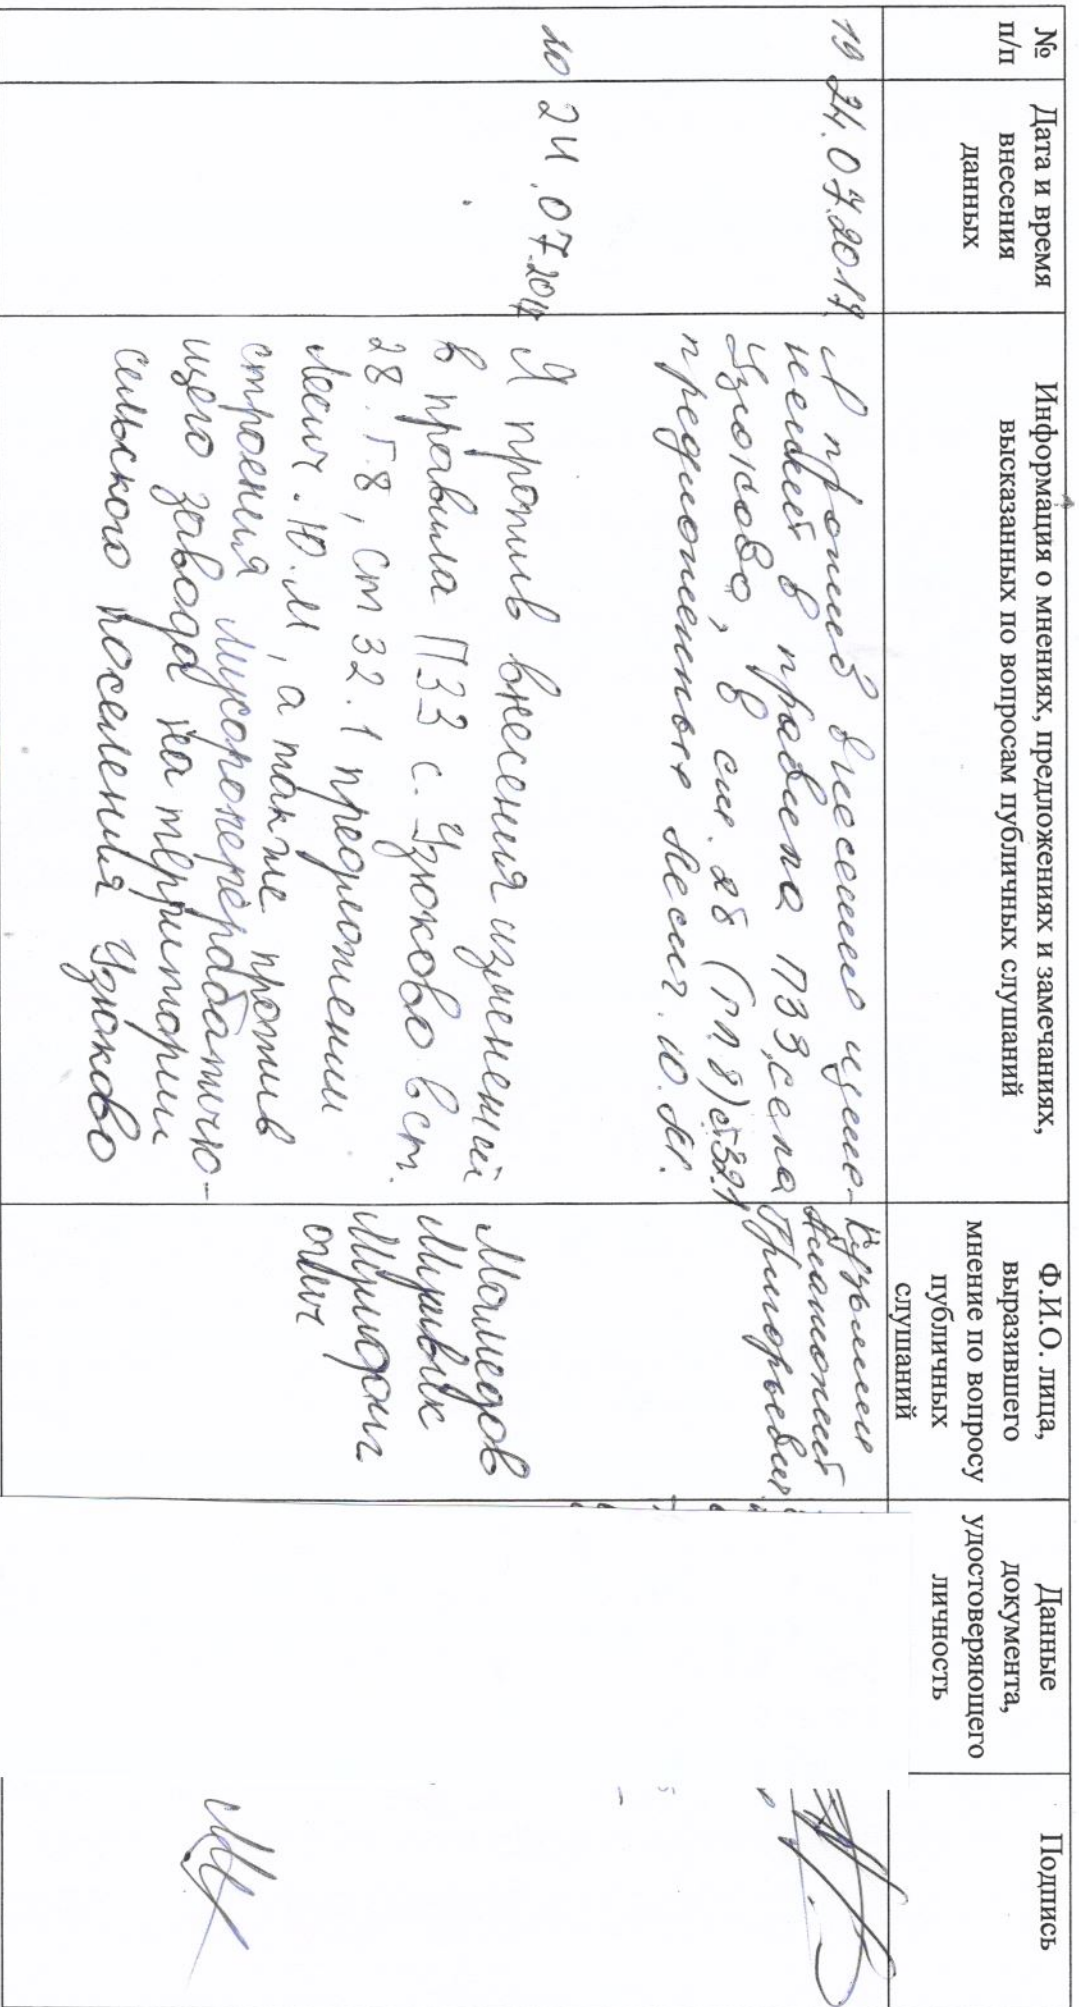 №
п/п
Дата и время
внесения
данных
Информация о мнениях, предложениях и замечаниях,
высказанных по вопросам публичных слушаний
Ф.И.О. лица,
выразившего
мнение по вопросу
публичных
слушаний
Данные
документа,
удостоверяющего
личность
Подпись
19
24.07.2017
Я против внесения изме-
нений в правила ПЗЗ села
Узюково, в ст. 28 (гл. 8) ст 32.1
предложенных Лесич. Ю. М.
Кузьмин
Анатолий
Григорьевич
20
24.07.2017
Я против внесения изменений
в правила ПЗЗ с. Узюково в ст.
28. Г.8, ст 32.1 предложении
Лесич. Ю.М, а также против
строения мусороперерабатыю-
щего завода на территории
сельского поселения Узюково
Мамедов